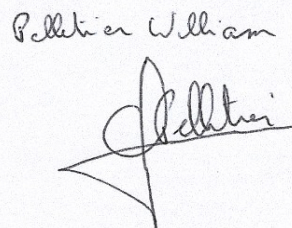 Pelletier William
Pelletier